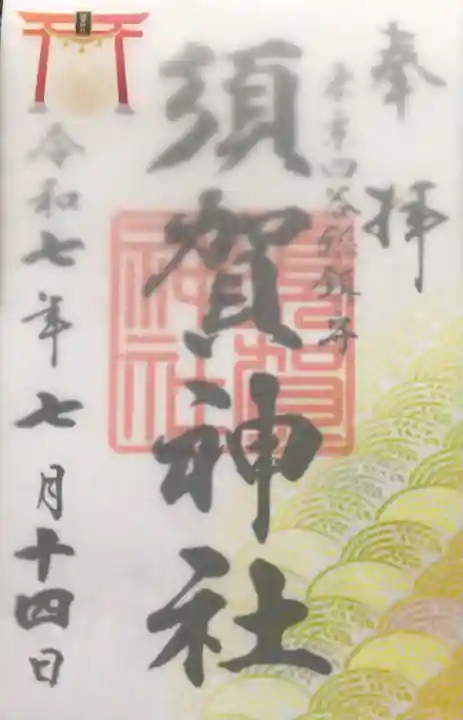 奉拝
東京四谷総鎮守
須賀神社
須賀神社
令和七年七月十四日